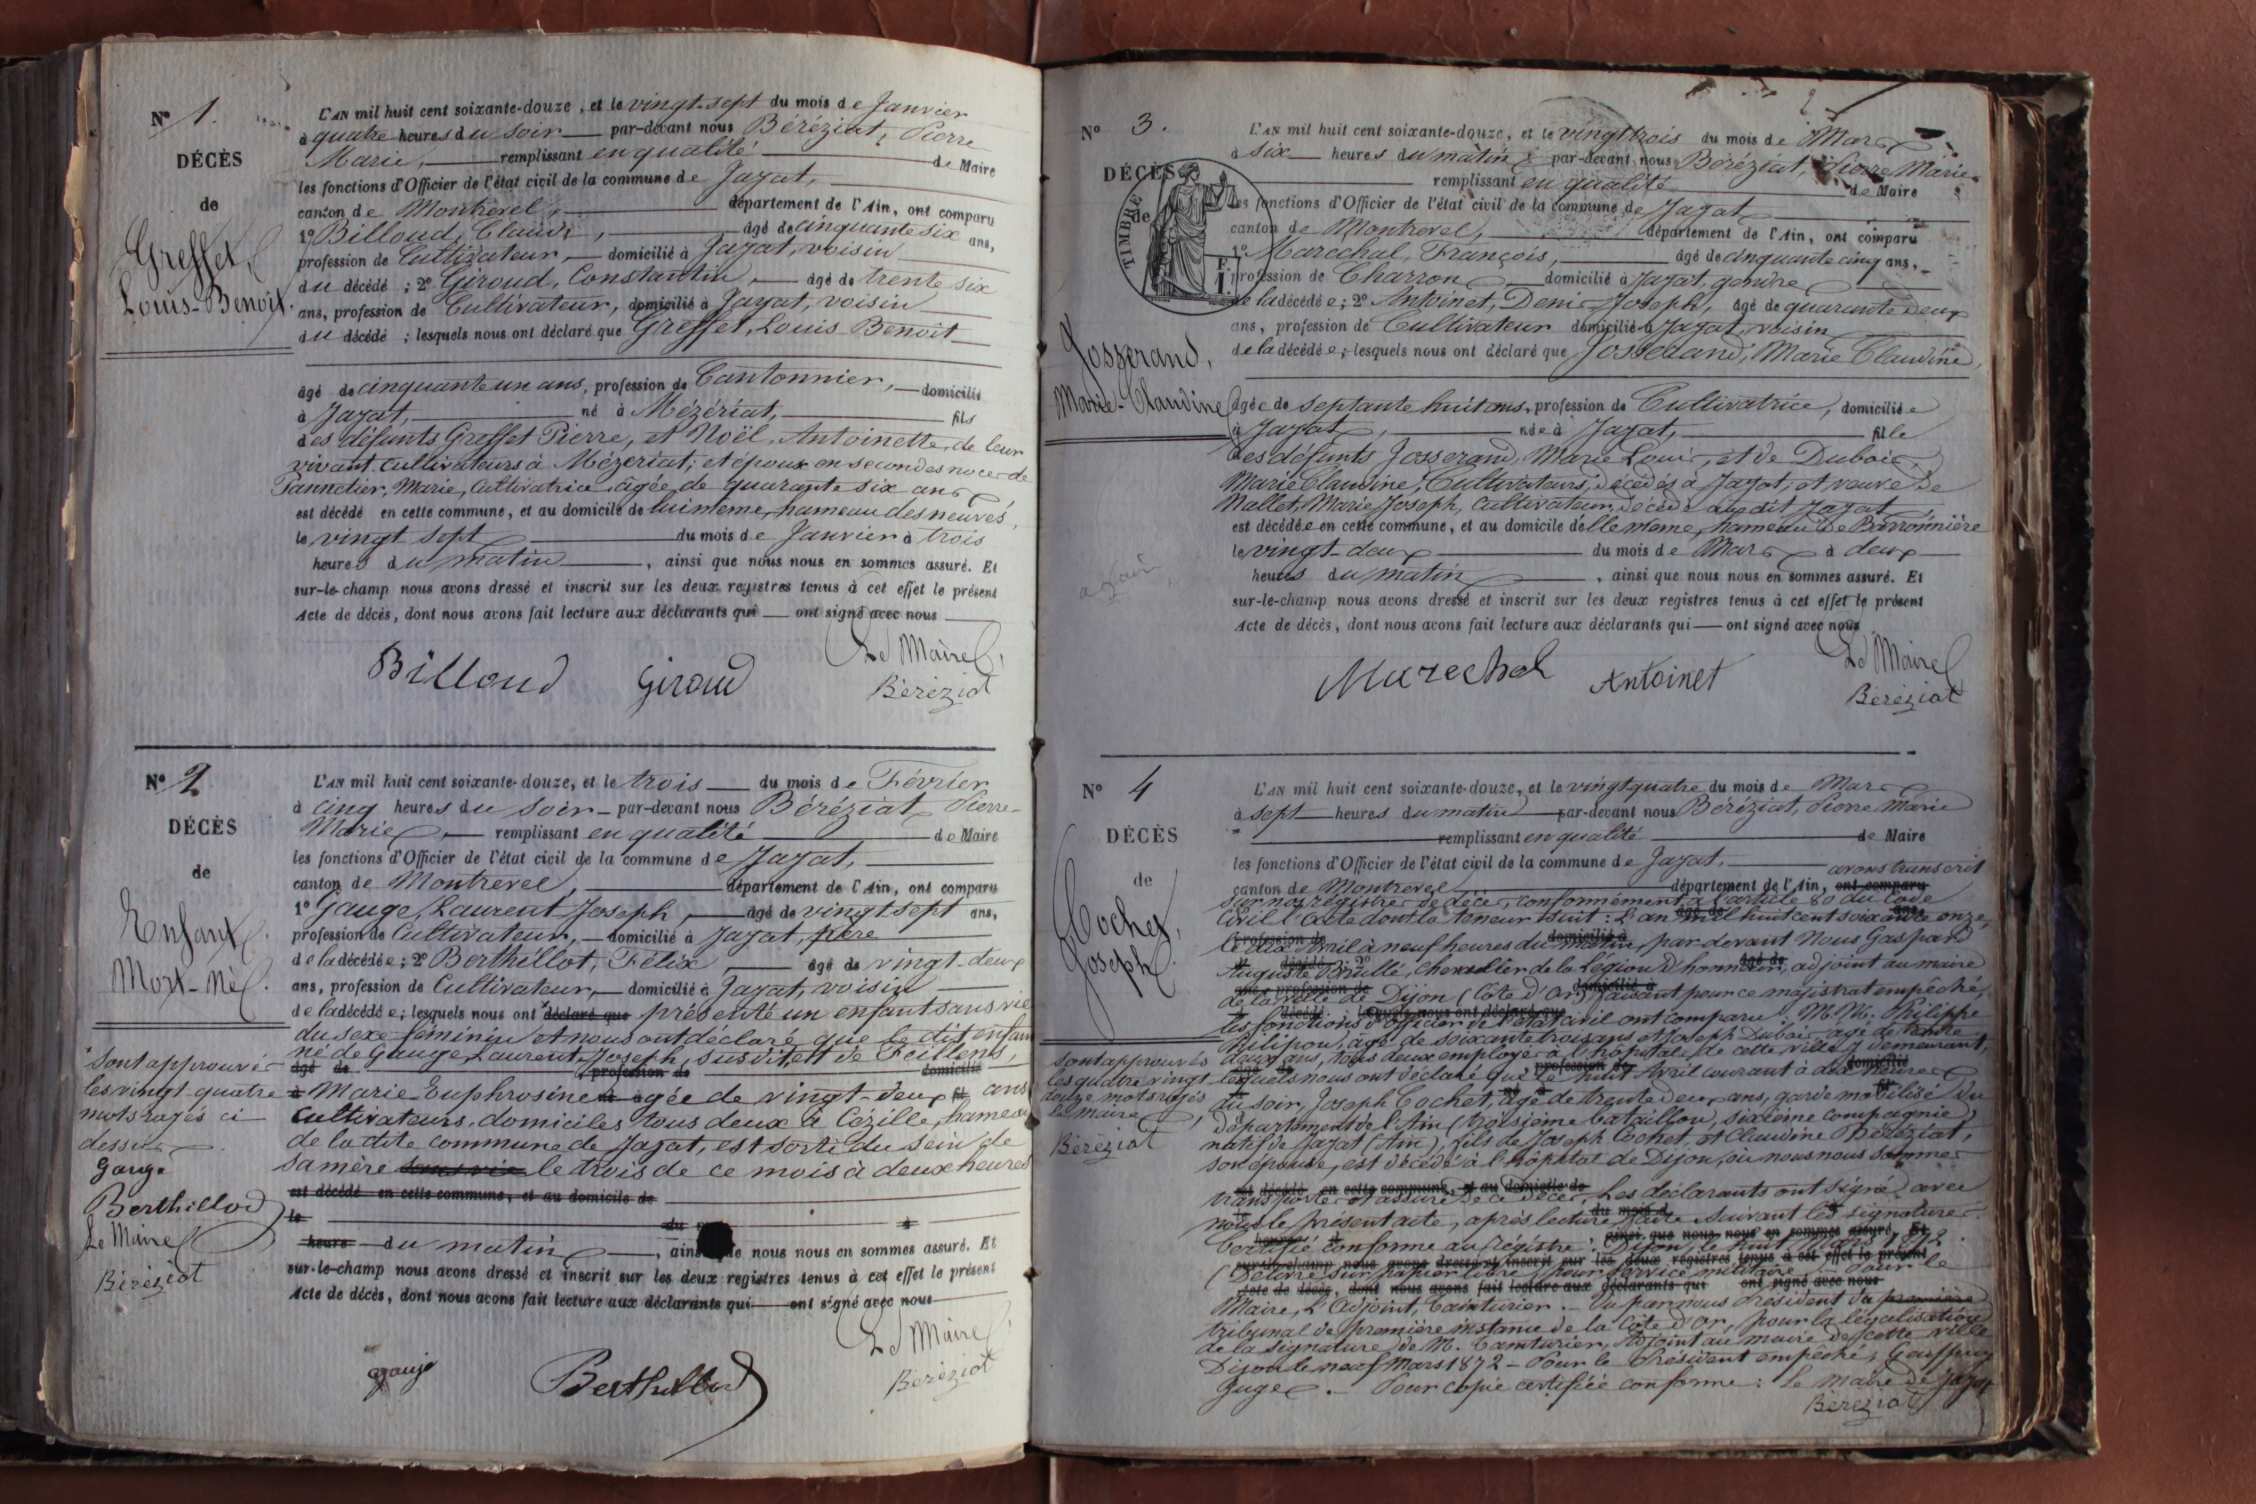 N° 1.
DÉCÈS
de
Greffet,
Louis-Benoit.
L'AN mil huit cent soixante-douze, et le vingt-sept du mois de Janvier
à quatre heures du soir par-devant nous Béréziat, Pierre
Marie, remplissant en qualité de Maire
les fonctions d'Officier de l'état civil de la commune de Jayat,
canton de Montrevel, département de l'Ain, ont comparu
1° Billoud, Claude, âgé de cinquante six ans,
profession de Cultivateur, domicilié à Jayat, voisin
du décédé ; 2° Giroud, Constantin, âgé de trente six
ans, profession de Cultivateur, domicilié à Jayat, voisin
du décédé ; lesquels nous ont déclaré que Greffet, Louis Benoit
âgé de cinquante un ans, profession de Cantonnier, domicilié
à Jayat, né à Mézériat, fils
des défunts Greffet Pierre, et Noël, Antoinette, de leur
vivant cultivateurs à Mézeriat; et époux en secondes noces de
Pannetier, Marie, Cultivatrice âgée de quarante six ans
est décédé en cette commune, et au domicile de lui même, hameau des neuves,
le vingt sept du mois de Janvier à trois
heures du matin, ainsi que nous nous en sommes assuré. Et
sur-le-champ nous avons dressé et inscrit sur les deux registres tenus à cet effet le présent
Acte de décès, dont nous avons fait lecture aux déclarants qui ont signé avec nous
Le Maire,
Billoud Giroud Béréziat
N° 2
DÉCÈS
de
Enfant
Mort-Né.
L'AN mil huit cent soixante-douze, et le trois du mois de Février
à cinq heures du soir par-devant nous Béréziat Pierre-
Marie, remplissant en qualité de Maire
les fonctions d'Officier de l'état civil de la commune de Jayat,
canton de Montrevel, département de l'Ain, ont comparu
1° Gauge, Laurent Joseph, âgé de vingt sept ans,
profession de Cultivateur, domicilié à Jayat, père
de la décédée ; 2° Berthillot, Félix, âgé de vingt-deux
ans, profession de Cultivateur, domicilié à Jayat, voisin
de la décédée ; lesquels nous ont déclaré que présenté un enfant sans vie
du sexe féminin et nous ont déclaré que le dit enfant
né de Gauge, Laurent Joseph, susdit, et de Feillens,
âgé de profession de domicilié
à Marie Euphrosine âgée de vingt-deux ans
cultivateurs, domiciliés tous deux à Cézille, hameau
de la dite commune de Jayat, est sorti du sein de
sa mère sans vie le trois de ce mois à deux heures
est décédé en cette commune, et au domicile de
le du à
heure du matin, ainsi de nous nous en sommes assuré. Et
sur-le-champ nous avons dressé et inscrit sur les deux registres tenus à cet effet le présent
Acte de décès, dont nous avons fait lecture aux déclarants qui ont signé avec nous
Sont approuvés
les vingt quatre
mots rayés ci
dessus
Gauge
Berthillod
Le Maire
Béréziat
Le Maire,
gauge Berthillod Béréziat
N° 3.
DÉCÈS
de
TIMBRE
Josserand,
Marie-Claudine
L'AN mil huit cent soixante-douze, et le vingt trois du mois de Mars
à six heures du matin par-devant nous Béréziat, Pierre Marie
remplissant en qualité de Maire
les fonctions d'Officier de l'état civil de la commune de Jayat
canton de Montrevel, département de l'Ain, ont comparu
1° Maréchal, François, âgé de cinquante cinq ans,
profession de Charron domicilié à Jayat, gendre
de la décédée ; 2° Antoinet, Denis Joseph, âgé de quarante deux
ans, profession de Cultivateur domicilié à Jayat, voisin
de la décédée ; lesquels nous ont déclaré que Josserand, Marie Claudine,
âgée de septante huit ans, profession de Cultivatrice, domiciliée
à Jayat, née à Jayat, fille
des défunts Josserand, Marie Louis, et de Dubois,
Marie Claudine, Cultivateurs, décédés à Jayat, et veuve de
Mallet, Marie Joseph, Cultivateur, décédé au dit Jayat
est décédée en cette commune, et au domicile d'elle même, hameau de Barronnière
le vingt-deux du mois de Mars à deux
heures du matin, ainsi que nous nous en sommes assuré. Et
sur-le-champ nous avons dressé et inscrit sur les deux registres tenus à cet effet le présent
Acte de décès, dont nous avons fait lecture aux déclarants qui ont signé avec nous
Le Maire
Marechal Antoinet Béréziat
N° 4
DÉCÈS
de
Cochet,
Joseph.
L'AN mil huit cent soixante-douze, et le vingt quatre du mois de Mars
à sept heures du matin par-devant nous Béréziat, Pierre Marie
remplissant en qualité de Maire
les fonctions d'Officier de l'état civil de la commune de Jayat, avons transcrit
canton de Montrevel département de l'Ain, ont comparu
sur nos registres de décès, conformément à l'article 80 du Code
Civil l'acte dont la teneur suit : L'an mil huit cent soixante onze,
le dix Avril à neuf heures du matin, par devant Nous Gaspard
Auguste Brullé, Chevalier de la Légion d'honneur, adjoint au maire
de la ville de Dijon (Côte d'Or) faisant pour ce magistrat empêché,
les fonctions d'officier de l'état civil ont comparu M.M. Philippe
Philipon, âgé de soixante trois ans et Joseph Dubois âgé de trente
deux ans, tous deux employés à l'hôpital de cette ville y demeurant,
lesquels nous ont déclaré que le huit Avril courant à dix heures
du soir, Joseph Cochet, âgé de trente deux ans, garde mobilisé du
département de l'Ain (troisième bataillon, sixième compagnie)
natif de Jayat (Ain), fils de Joseph Cochet, et Claudine Béréziat,
son épouse, est décédé à l'hôpital de Dijon, où nous nous sommes
transporté et assuré de ce décès. Les déclarants ont signé avec
nous le présent acte, après lecture faite. Suivant les signatures.
Certifié conforme au régistre. Dijon, le huit Mars 1872.
(Délivré sur papier libre, pour service militaire) Pour le
Maire, L'Adjoint, Cainturier. Vu par nous Président du première
tribunal de première instance de la Côte d'Or, pour la légalisation
de la signature de M. Cainturier, Adjoint au maire de cette ville
Dijon le neuf Mars 1872 - Pour le Président empêché,
Juge. Pour copie certifiée conforme : le maire de Jayat
Béréziat
Sont approuvés
les quatre vingt
douze mots rayés
le maire
Béréziat